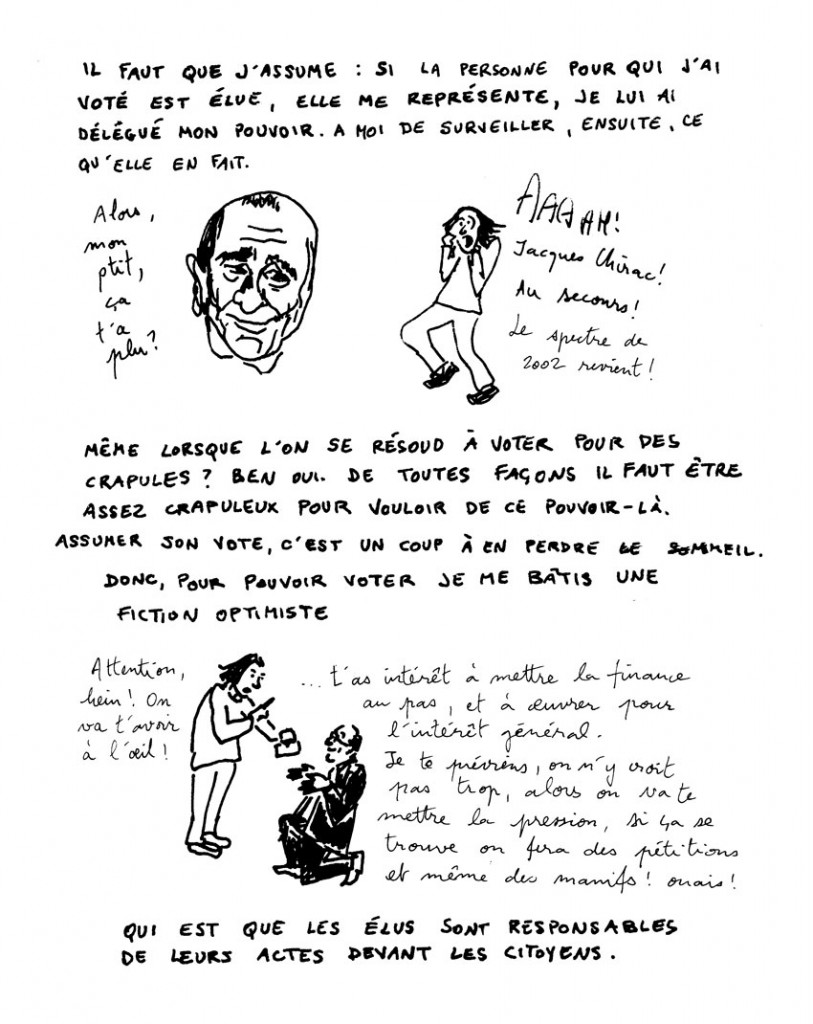 IL FAUT QUE J'ASSUME : SI LA PERSONNE POUR QUI J'AI
VOTÉ EST ÉLUE, ELLE ME REPRÉSENTE, JE LUI AI
DÉLÉGUÉ MON POUVOIR. A MOI DE SURVEILLER, ENSUITE, CE
QU'ELLE EN FAIT.
Alors,
mon
ptit,
ça
t'a
plu?
AAAAH!
Jacques Chirac!
Au secours!
Le spectre de
2002 revient!
MÊME LORSQUE L'ON SE RÉSOUD À VOTER POUR DES
CRAPULES? BEN OUI. DE TOUTES FAÇONS IL FAUT ÊTRE
ASSEZ CRAPULEUX POUR VOULOIR DE CE POUVOIR-LÀ.
ASSUMER SON VOTE, C'EST UN COUP À EN PERDRE LE SOMMEIL.
DONC, POUR POUVOIR VOTER JE ME BÂTIS UNE
FICTION OPTIMISTE
Attention,
hein! On
va t'avoir
à l'œil!
...t'as intérêt à mettre la finance
au pas, et à œuvrer pour
l'intérêt général.
Je te préviens, on n'y croit
pas trop, alors on va te
mettre la pression, si ça se
trouve on fera des pétitions
et même des manifs! ouais!
QUI EST QUE LES ÉLUS SONT RESPONSABLES
DE LEURS ACTES DEVANT LES CITOYENS.